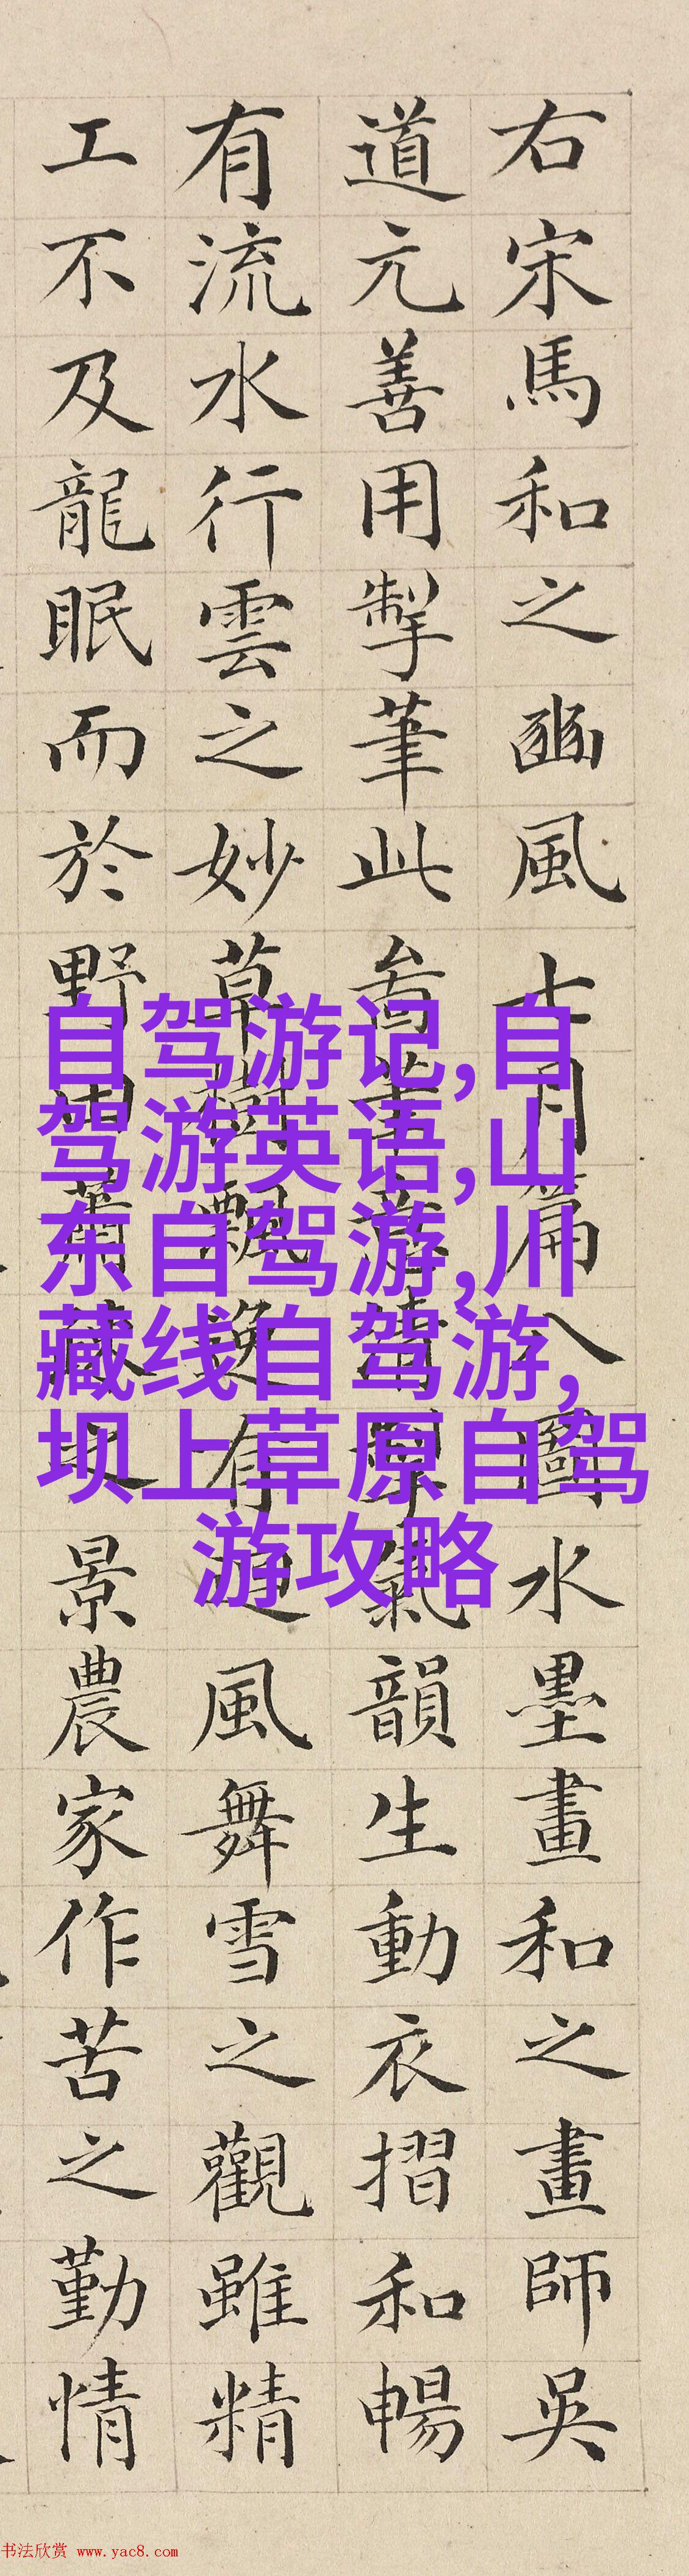 右宋馬和之豳風七月篇八圖水墨畫和之畫師吳
道元善用掣筆此
氣韻生動衣摺和暢
有流水行雲之妙草樹飄逸有迴風舞雪之觀雖精
工不及龍眠而於野田
景農家作苦之勤情
自驾游记,自
驾游英语,山
东自驾游,川
藏线自驾游,
坝上草原自驾
游攻略
书法欣赏 www.yac8.com